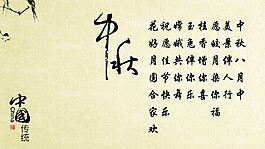 中秋
中秋八月中
美景伴人行
愿皎月染你福
桂香增你喜
玉兔伴你乐
嫦娥共你舞
祝愿佳节快乐
花好月圆合家欢
中国
China
传统